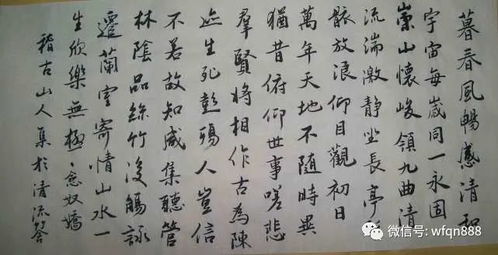 暮春風暢感清和
宇宙每歲同一永固
崇山懷峻領九曲清
流湍激靜坐長亭
骸放浪仰目觀初日
萬年天地不隨時異
猶昔俯仰世事嗟悲
羣賢將相作古為陳
迹生死彭殤人豈信
不若故知咸集聽管
林陰品絲竹觴詠
遷蘭室寄情山水一
生欣樂無極念奴嬌
稽古山人集於清流
微信号: wfqn888